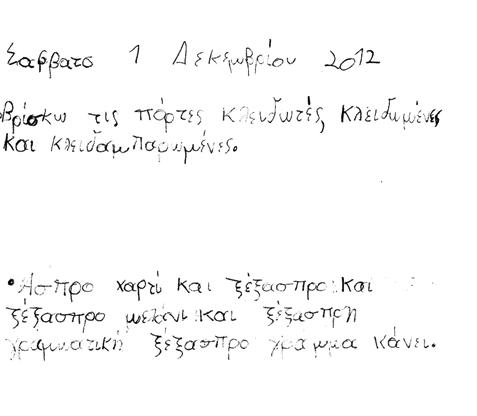 Σαββατο 1 Δεκεμβρίου 2012
Βρίσκω τις πόρτες κλειδωτές, κλειδωμένες
και κλειδαμπαρωμένες.
•Ασπρο χαρτί και ξέξασπρο και
ξέξασπρο μελάνι και ξέξασπρη
γραμματική ξέξασπρο γράμμα κάνει.